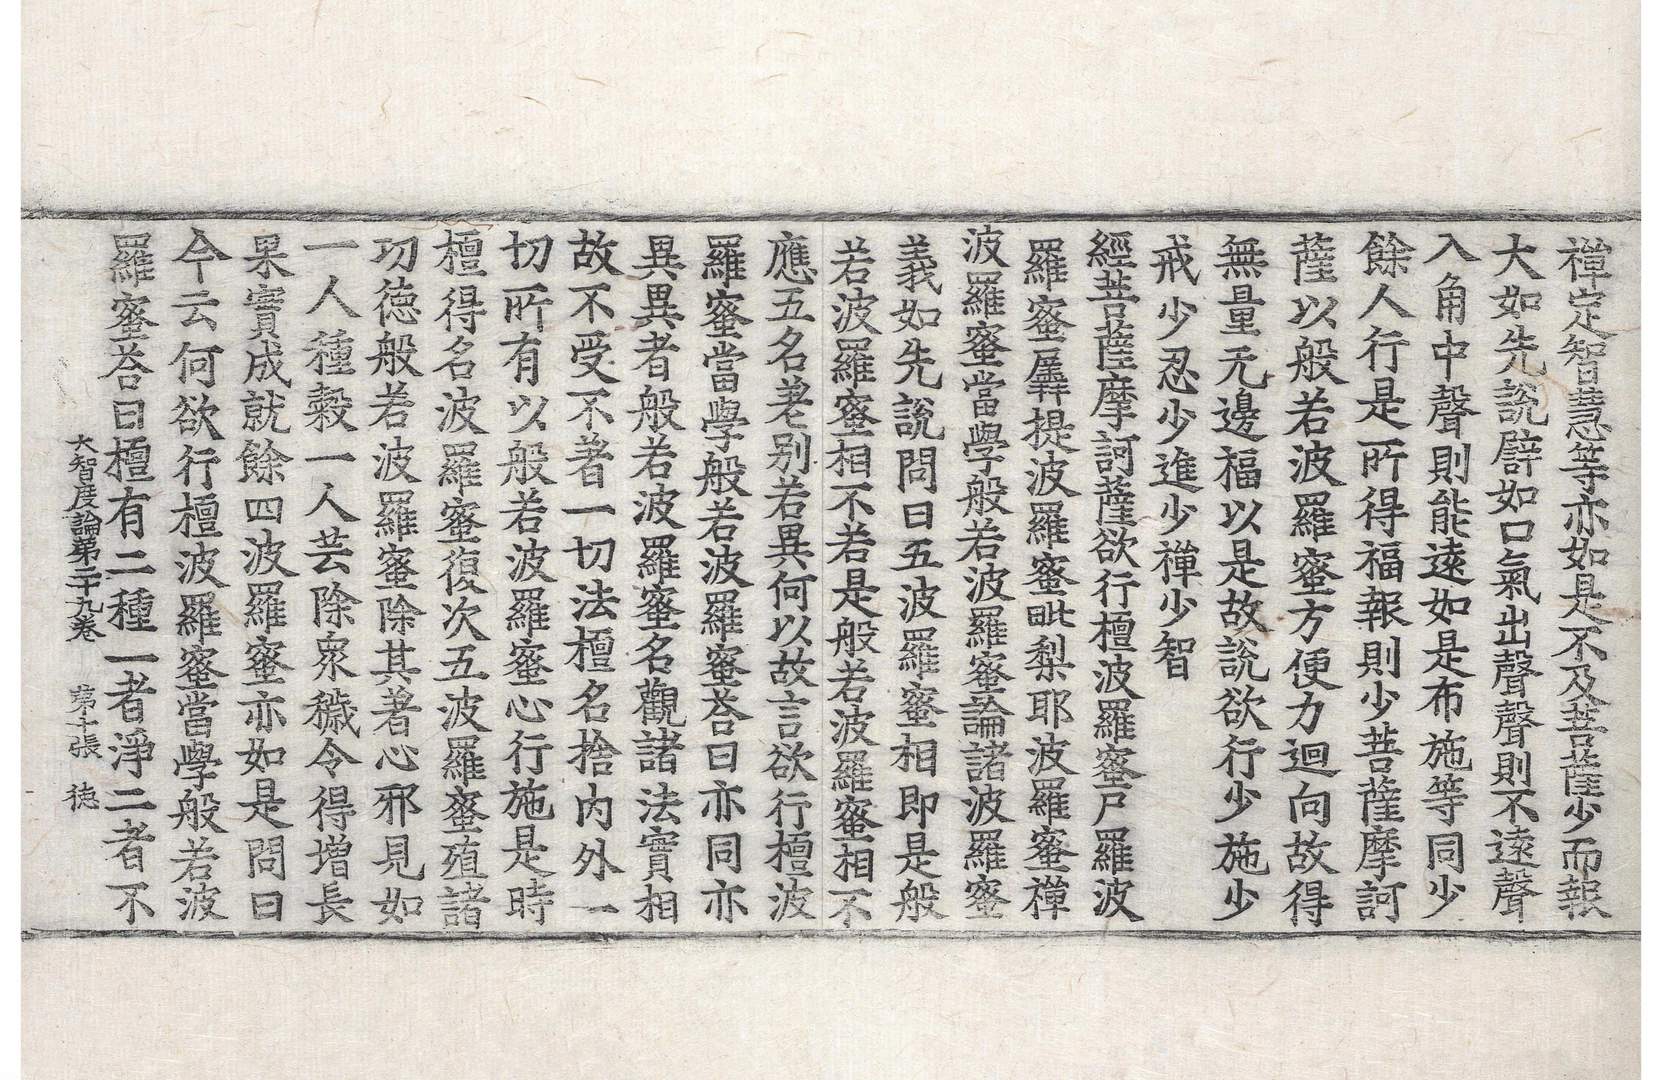 禪定智慧等亦如是不及菩薩少而報
大如先說譬如口氣出聲聲則不遠聲
入角中聲則能遠如是布施等同少
餘人行是所得福報則少菩薩摩訶
薩以般若波羅蜜方便力迴向故得
無量无邊福以是故說欲行少施少
戒少忍少進少禪少智
經菩薩摩訶薩欲行檀波羅蜜尸羅波
羅蜜羼提波羅蜜毗梨耶波羅蜜禪
波羅蜜當學般若波羅蜜論諸波羅蜜
義如先說問曰五波羅蜜相即是般
若波羅蜜相不若是般若波羅蜜相不
應五名差别若異何以故言欲行檀波
羅蜜當學般若波羅蜜荅曰亦同亦
異異者般若波羅蜜名觀諸法實相
故不受不著一切法檀名捨內外一
切所有以般若波羅蜜心行施是時
檀得名波羅蜜復次五波羅蜜殖諸
功德般若波羅蜜除其著心邪見如
一人種穀一人芸除衆穢令得增長
果實成就餘四波羅蜜亦如是問曰
今云何欲行檀波羅蜜當學般若波
羅蜜荅曰檀有二種一者淨二者不
大智度論第二十九卷 第十張 德